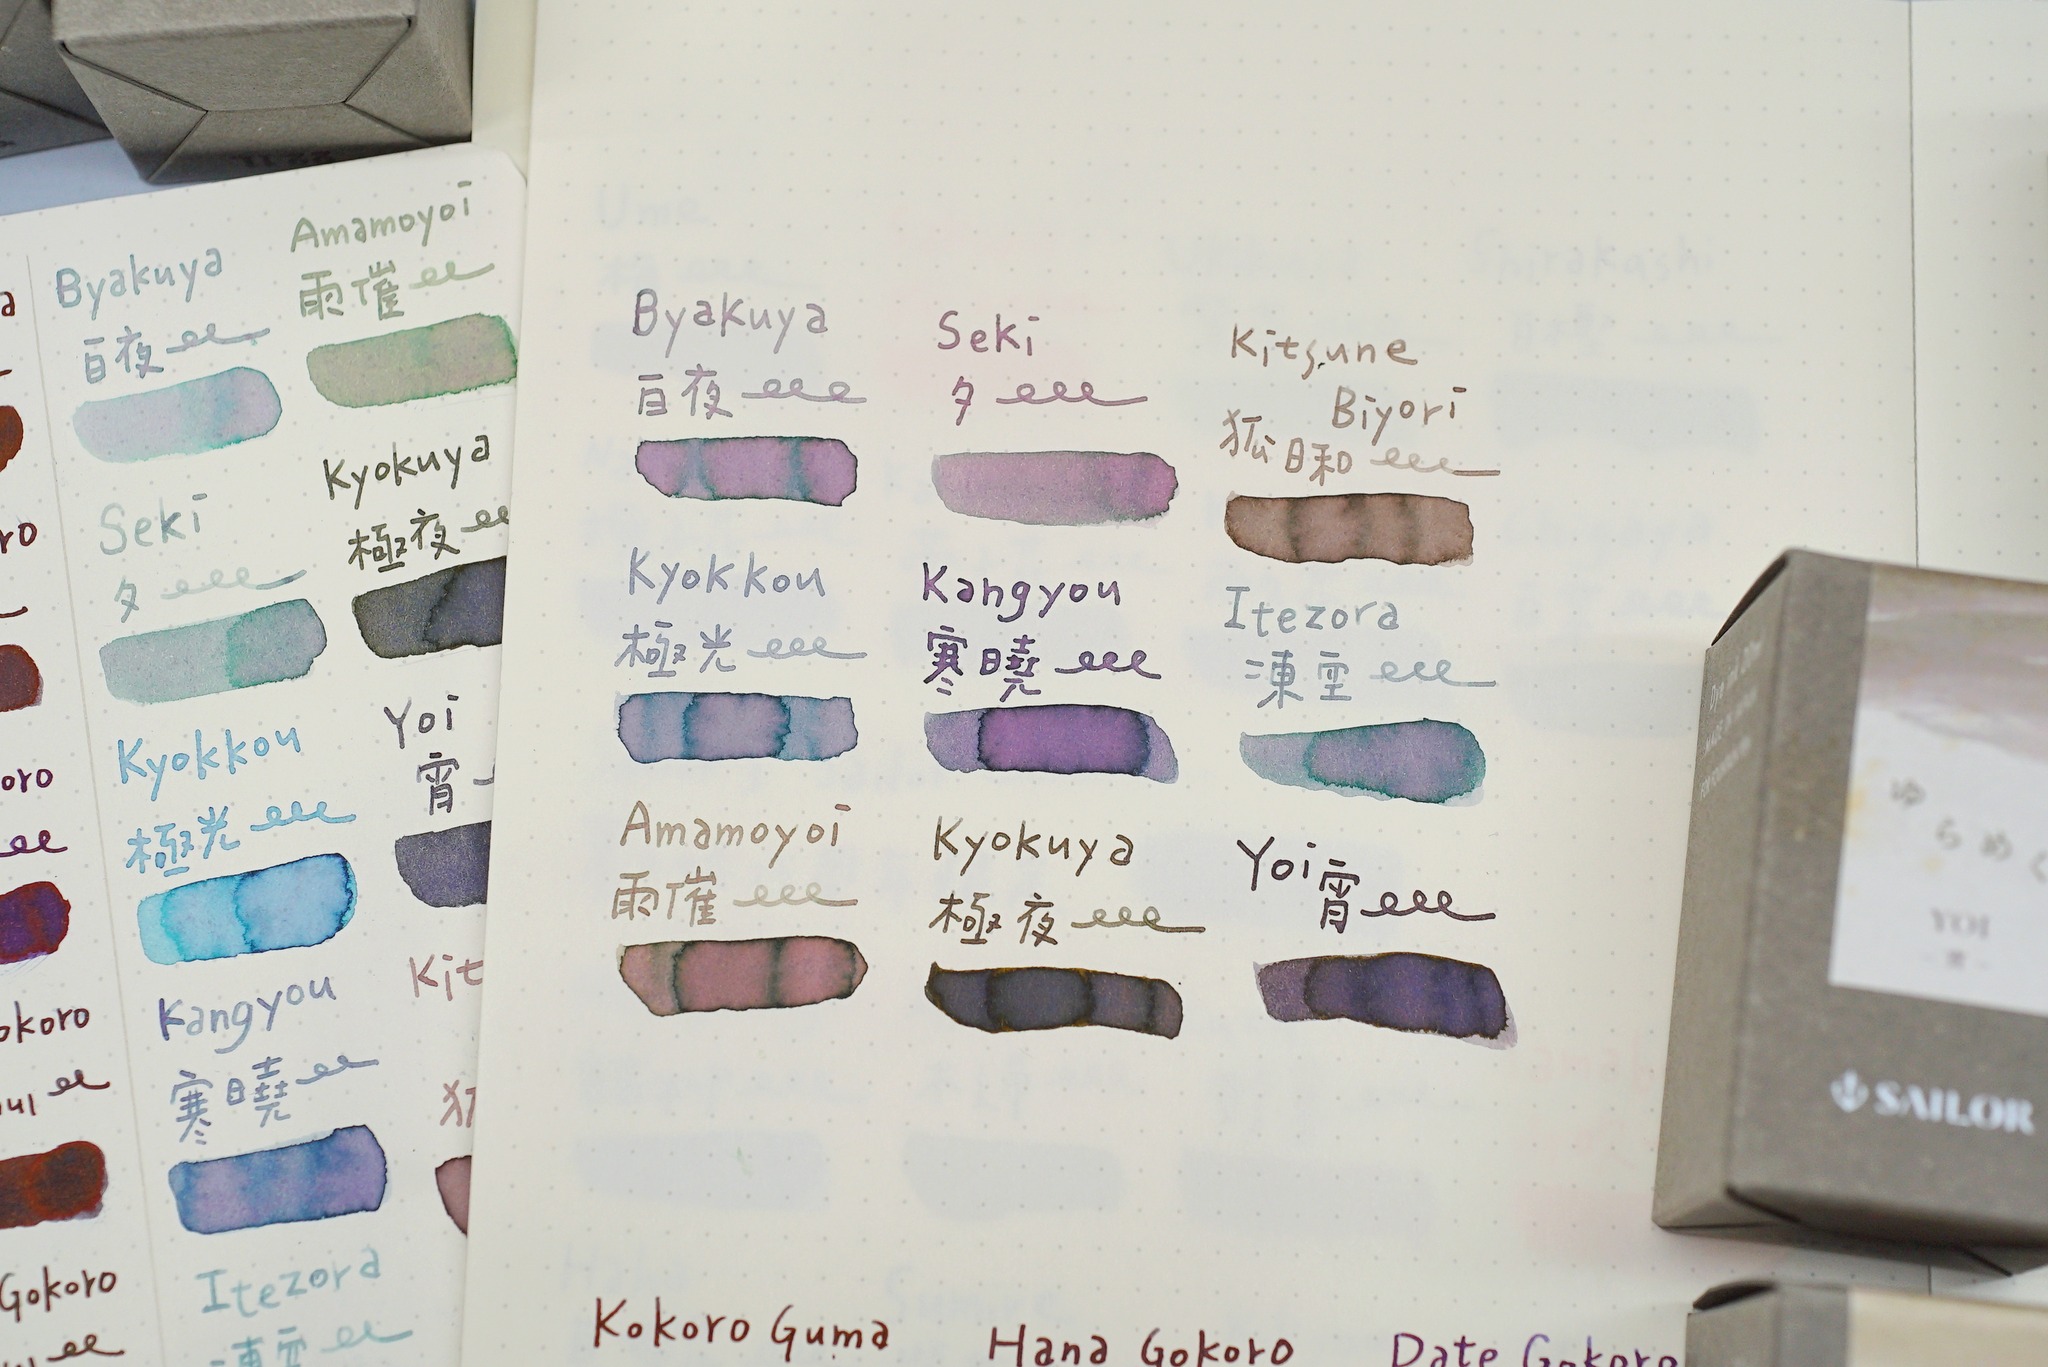 Amamoyoi
雨催
Byakuya
百夜
Kyokuya
極夜
Seki
夕
Yoi
宵
Kyokkou
極光
Kangyou
寒曉
Itezora
凍空
Gokoro
Byakuya
百夜
Seki
夕
Kitsune
Biyori
狐日和
Kyokkou
極光
Kangyou
寒曉
Itezora
凍空
Amamoyoi
雨催
Kyokuya
極夜
Yoi 宵
Kokoro Guma
Hana Gokoro
Date Gokoro
Ume
Shirakashi
ゆらめく
YOI
宵
SAILOR